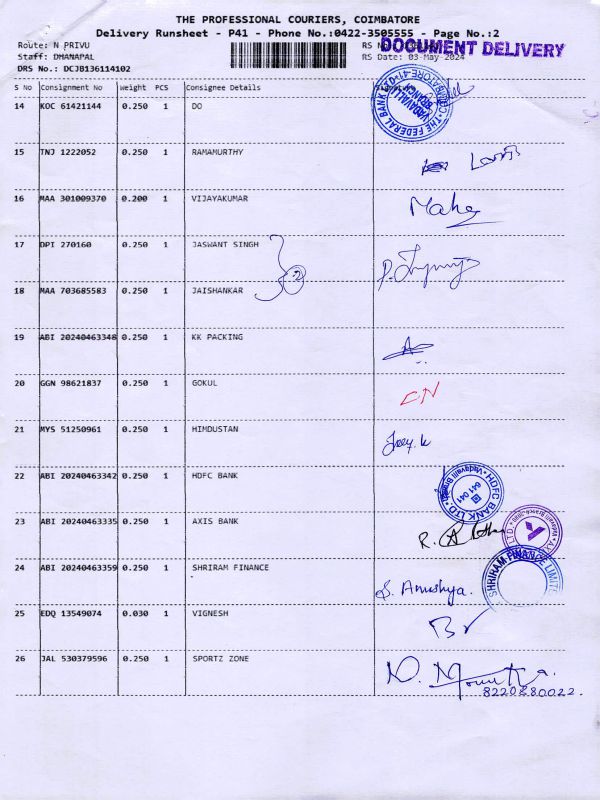 THE PROFESSIONAL COURIERS, COIMBATORE
Delivery Runsheet - P41 - Phone No.:0422-3505555 - Page No.:2
Route: N PRIVU RS No
DOCUMENT DELIVERY
Staff: DHANAPAL RS Date: 03-May-2024
DRS No.: DCJB136114102
S No Consignment No Weight PCS Consignee Details
14 KOC 61421144 0.250 1 DO
THE FEDERAL BANK LTD
VADAVALLI BRANCH
15 TNJ 1222052 0.250 1 RAMAMURTHY
16 MAA 301009370 0.200 1 VIJAYAKUMAR Maha
17 DPI 270160 0.250 1 JASWANT SINGH
2
18 MAA 703685583 0.250 1 JAISHANKAR
19 ABI 20240463348 0.250 1 KK PACKING
20 GGN 98621837 0.250 1 GOKUL
21 MYS 51250961 0.250 1 HIMDUSTAN
22 ABI 20240463342 0.250 1 HDFC BANK
HDFC BANK LTD
Vadavalli Branch
641 041
23 ABI 20240463335 0.250 1 AXIS BANK
24 ABI 20240463359 0.250 1 SHRIRAM FINANCE S. Anushya.
SHRIRAM FINANCE LIMITED
25 EDQ 13549074 0.030 1 VIGNESH
26 JAL 530379596 0.250 1 SPORTZ ZONE
8220280022.